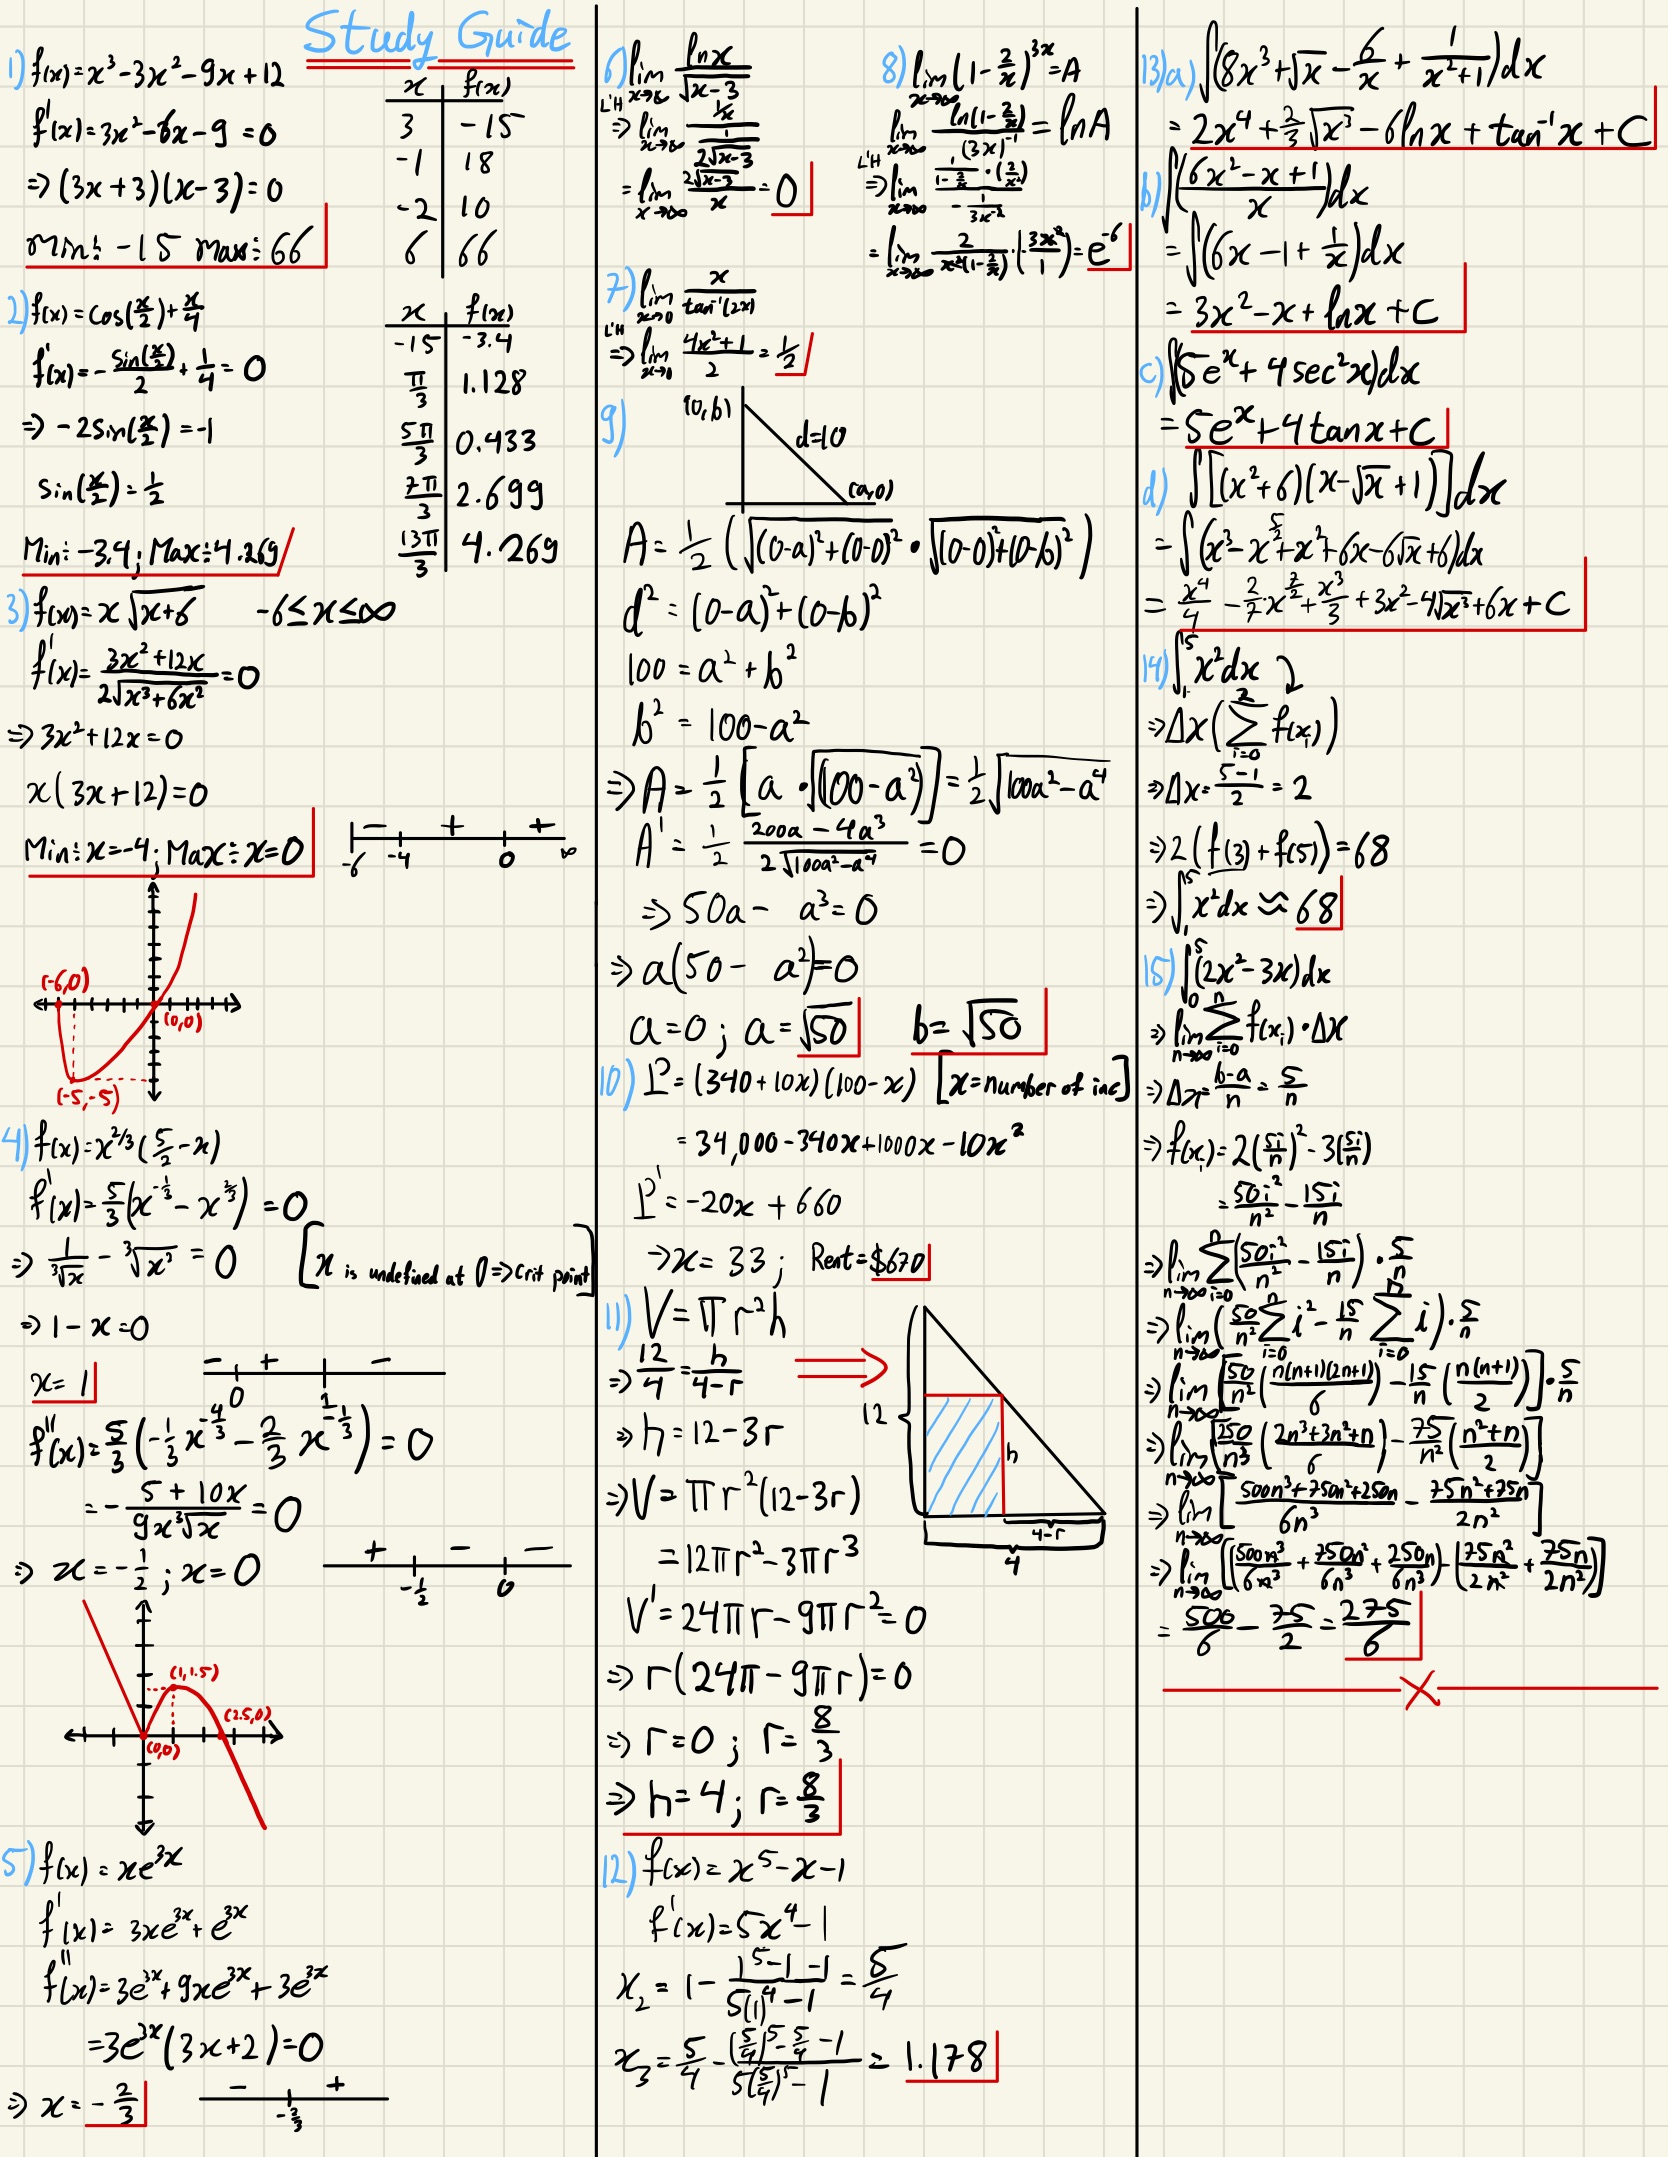 Study Guide
1) f(x)=x³-3x²-9x+12
f'(x)=3x²-6x-9=0
⇒(3x+3)(x-3)=0
Min: -15 Max: 66
x | f(x)
3 | -15
-1 | 18
-2 | 10
6 | 66
2) f(x)=cos(x/2)+x/4
f'(x)=-sin(x/2)/2+1/4=0
⇒ -2sin(x/2)=-1
sin(x/2)=1/2
Min: -3.4; Max: 4.269
x | f(x)
-15 | -3.4
π/3 | 1.128
5π/3 | 0.433
7π/3 | 2.699
13π/3 | 4.269
3) f(x)=x√(x+6) -6≤x≤∞
f'(x)=(3x²+12x)/(2√(x³+6x²))=0
⇒3x²+12x=0
x(3x+12)=0
Min: x=-4; Max: x=0
- + +
-6 -4 0 ∞
(-6,0)
(0,0)
(-5,-5)
4) f(x)=x^(2/3)(5/2-x)
f'(x)=5/3(x^(-1/3)-x^(2/3))=0
⇒ 1/∛x - ∛x² = 0 [x is undefined at 0⇒crit point]
⇒ 1-x=0
x=1
- + -
0 1
f''(x)=5/3(-1/3 x^(-4/3) - 2/3 x^(-1/3))=0
=-(5+10x)/(9x∛x)=0
⇒ x=-1/2; x=0
+ - -
-1/2 0
(1,1.5)
(2.5,0)
(0,0)
5) f(x)=xe^(3x)
f'(x)=3xe^(3x)+e^(3x)
f''(x)=3e^(3x)+9xe^(3x)+3e^(3x)
=3e^(3x)(3x+2)=0
⇒ x=-2/3
- +
-2/3
6) lim x→∞ lnx/√(x-3)
L'H ⇒ lim x→∞ (1/x)/(1/(2√(x-3)))
= lim x→∞ 2√(x-3)/x = 0
7) lim x→0 x/tan⁻¹(2x)
L'H ⇒ lim x→0 (4x²+1)/2 = 1/2
8) lim x→∞ (1-2/x)^(3x)=A
lim x→∞ ln(1-2/x)/(3x)⁻¹ = lnA
L'H ⇒ lim x→∞ (1/(1-2/x)·(2/x²))/(-1/(3x²))
= lim x→∞ 2/(x²(1-2/x))·(-3x²/1)=e⁻⁶
9)
(0,b)
d=10
(a,0)
A=1/2(√((0-a)²+(0-0)²)·√((0-0)²+(0-b)²))
d²=(0-a)²+(0-b)²
100=a²+b²
b²=100-a²
⇒A=1/2[a·√(100-a²)]=1/2√(100a²-a⁴)
A'=1/2 (200a-4a³)/(2√(100a²-a⁴))=0
⇒50a- a³=0
⇒a(50- a²)=0
a=0; a=√50 b=√50
10) P=(340+10x)(100-x) [x=number of inc]
=34,000-340x+1000x-10x²
P'=-20x+660
→x=33; Rent=$670
11) V=πr²h
⇒12/4=h/(4-r)
⇒h=12-3r
⇒V=πr²(12-3r)
=12πr²-3πr³
12
h
4-r
4
V'=24πr-9πr²=0
⇒r(24π-9πr)=0
⇒r=0; r=8/3
⇒h=4; r=8/3
12) f(x)=x⁵-x-1
f'(x)=5x⁴-1
x₂=1-(1⁵-1-1)/(5(1)⁴-1)=5/4
x₃=5/4-((5/4)⁵-5/4-1)/(5(5/4)⁵-1)=1.178
13)a) ∫(8x³+√x-6/x+1/(x²+1))dx
=2x⁴+2/3√x³-6lnx+tan⁻¹x+C
b) ∫((6x²-x+1)/x)dx
=∫(6x-1+1/x)dx
=3x²-x+lnx+C
c) ∫(5eˣ+4sec²x)dx
=5eˣ+4tanx+C
d) ∫[(x²+6)(x-√x+1)]dx
=∫(x³-x^(5/2)+x²+6x-6√x+6)dx
=x⁴/4-2/7·x^(7/2)+x³/3+3x²-4√x³+6x+C
14) ∫₁⁵x²dx
⇒Δx(Σ i=0 2 f(xᵢ))
⇒Δx=(5-1)/2=2
⇒2(f(3)+f(5))=68
⇒∫₁⁵x²dx≈68
15) ∫₀⁵(2x²-3x)dx
⇒lim n→∞ Σ i=0 n f(xᵢ)·Δx
⇒Δx=(b-a)/n=5/n
⇒f(xᵢ)=2(5i/n)²-3(5i/n)
=50i²/n²-15i/n
⇒lim n→∞ Σ i=0 n (50i²/n²-15i/n)·5/n
⇒lim n→∞ (50/n² Σ i=0 n i²-15/n Σ i=0 n i)·5/n
⇒lim n→∞ [50/n²(n(n+1)(2n+1)/6)-15/n(n(n+1)/2)]·5/n
⇒lim n→∞ [250/n³((2n³+3n²+n)/6)-75/n²((n²+n)/2)]
⇒lim n→∞ [(500n³+750n²+250n)/6n³-(75n²+75n)/2n²]
⇒lim n→∞ [(500n³/6n³+750n²/6n³+250n/6n³)-(75n²/2n²+75n/2n²)]
=500/6-75/2=275/6